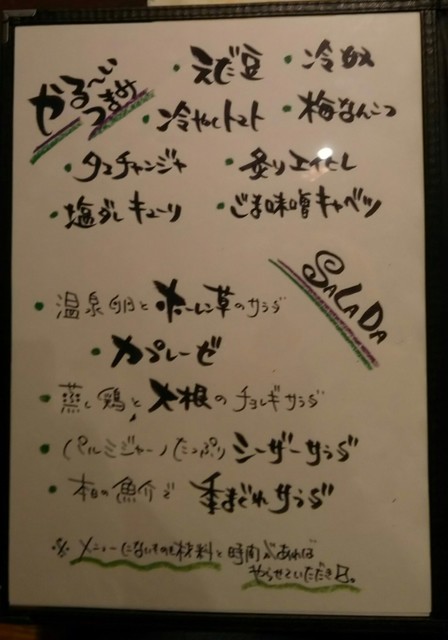 かる〜い
つまみ
・えだ豆 ・冷奴
・冷やしトマト ・梅なんこつ
・タコチャンジャ ・炙りエイヒレ
・塩ダレキューリ ・ごま味噌キャベツ
SALADA
・温泉卵とホーレン草のサラダ
・カプレーゼ
・蒸し鶏と大根のチョレギサラダ
・(パルミジャーノたっぷり)シーザーサラダ
・本日の魚介で気まぐれサラダ
※メニューにないものも材料と時間があれば
やらせていただき〼。